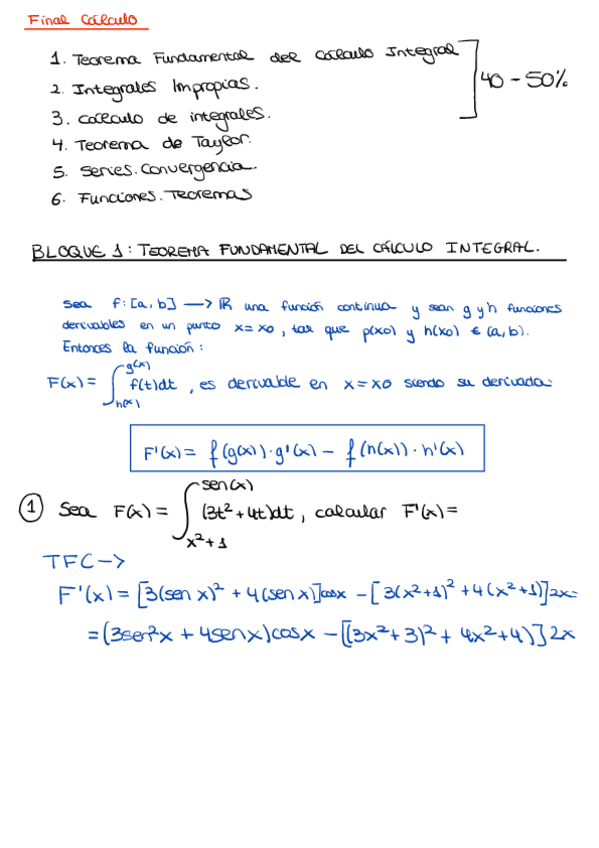 Final Cálculo
1. Teorema Fundamental del Cálculo Integral
2. Integrales Impropias.
3. Cálculo de integrales.
40 - 50%
4. Teorema de Taylor.
5. Series. Convergencia.
6. Funciones. Teoremas
BLOQUE 1: TEOREMA FUNDAMENTAL DEL CÁLCULO INTEGRAL.
Sea f: [a, b] → ℝ una función continua y sean g y h funciones
derivables en un punto x = x0, tal que p(x0) y h(x0) ∈ (a, b).
Entonces la función:
F(x) = ∫_{h(x)}^{g(x)} f(t)dt, es derivable en x = x0 siendo su derivada:
F'(x) = f(g(x))·g'(x) - f(h(x))·h'(x)
① Sea F(x) = ∫_{x²+1}^{sen(x)} (3t² + 4t)dt, calcular F'(x) =
TFC →
F'(x) = [3(sen x)² + 4(sen x)]cosx - [3(x²+1)² + 4(x²+1)]2x =
= (3sen²x + 4senx)cosx - [(3x²+3)² + 4x²+4)]2x